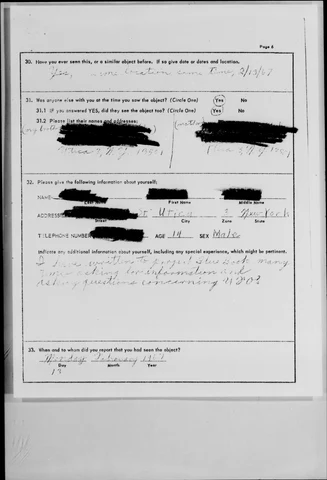 Page 6
30. Have you ever seen this, or a similar object before. If so give date or dates and location.
Yes, same location same time, 2/13/67
31. Was anyone else with you at the time you saw the object? (Circle One) Yes No
31.1 If you answered YES, did they see the object too? (Circle One) Yes No
31.2 Please list their names and addresses:
32. Please give the following information about yourself:
NAME
Last Name First Name Middle Name
ADDRESS St Utica 3 New York
Street City Zone State
TELEPHONE NUMBER AGE 14 SEX Male
Indicate any additional information about yourself, including any special experience, which might be pertinent.
I have written to project blue book many
times asking for information and
asking questions concerning UFOs
33. When and to whom did you report that you had seen the object?
Monday February 1967
Day Month Year
13